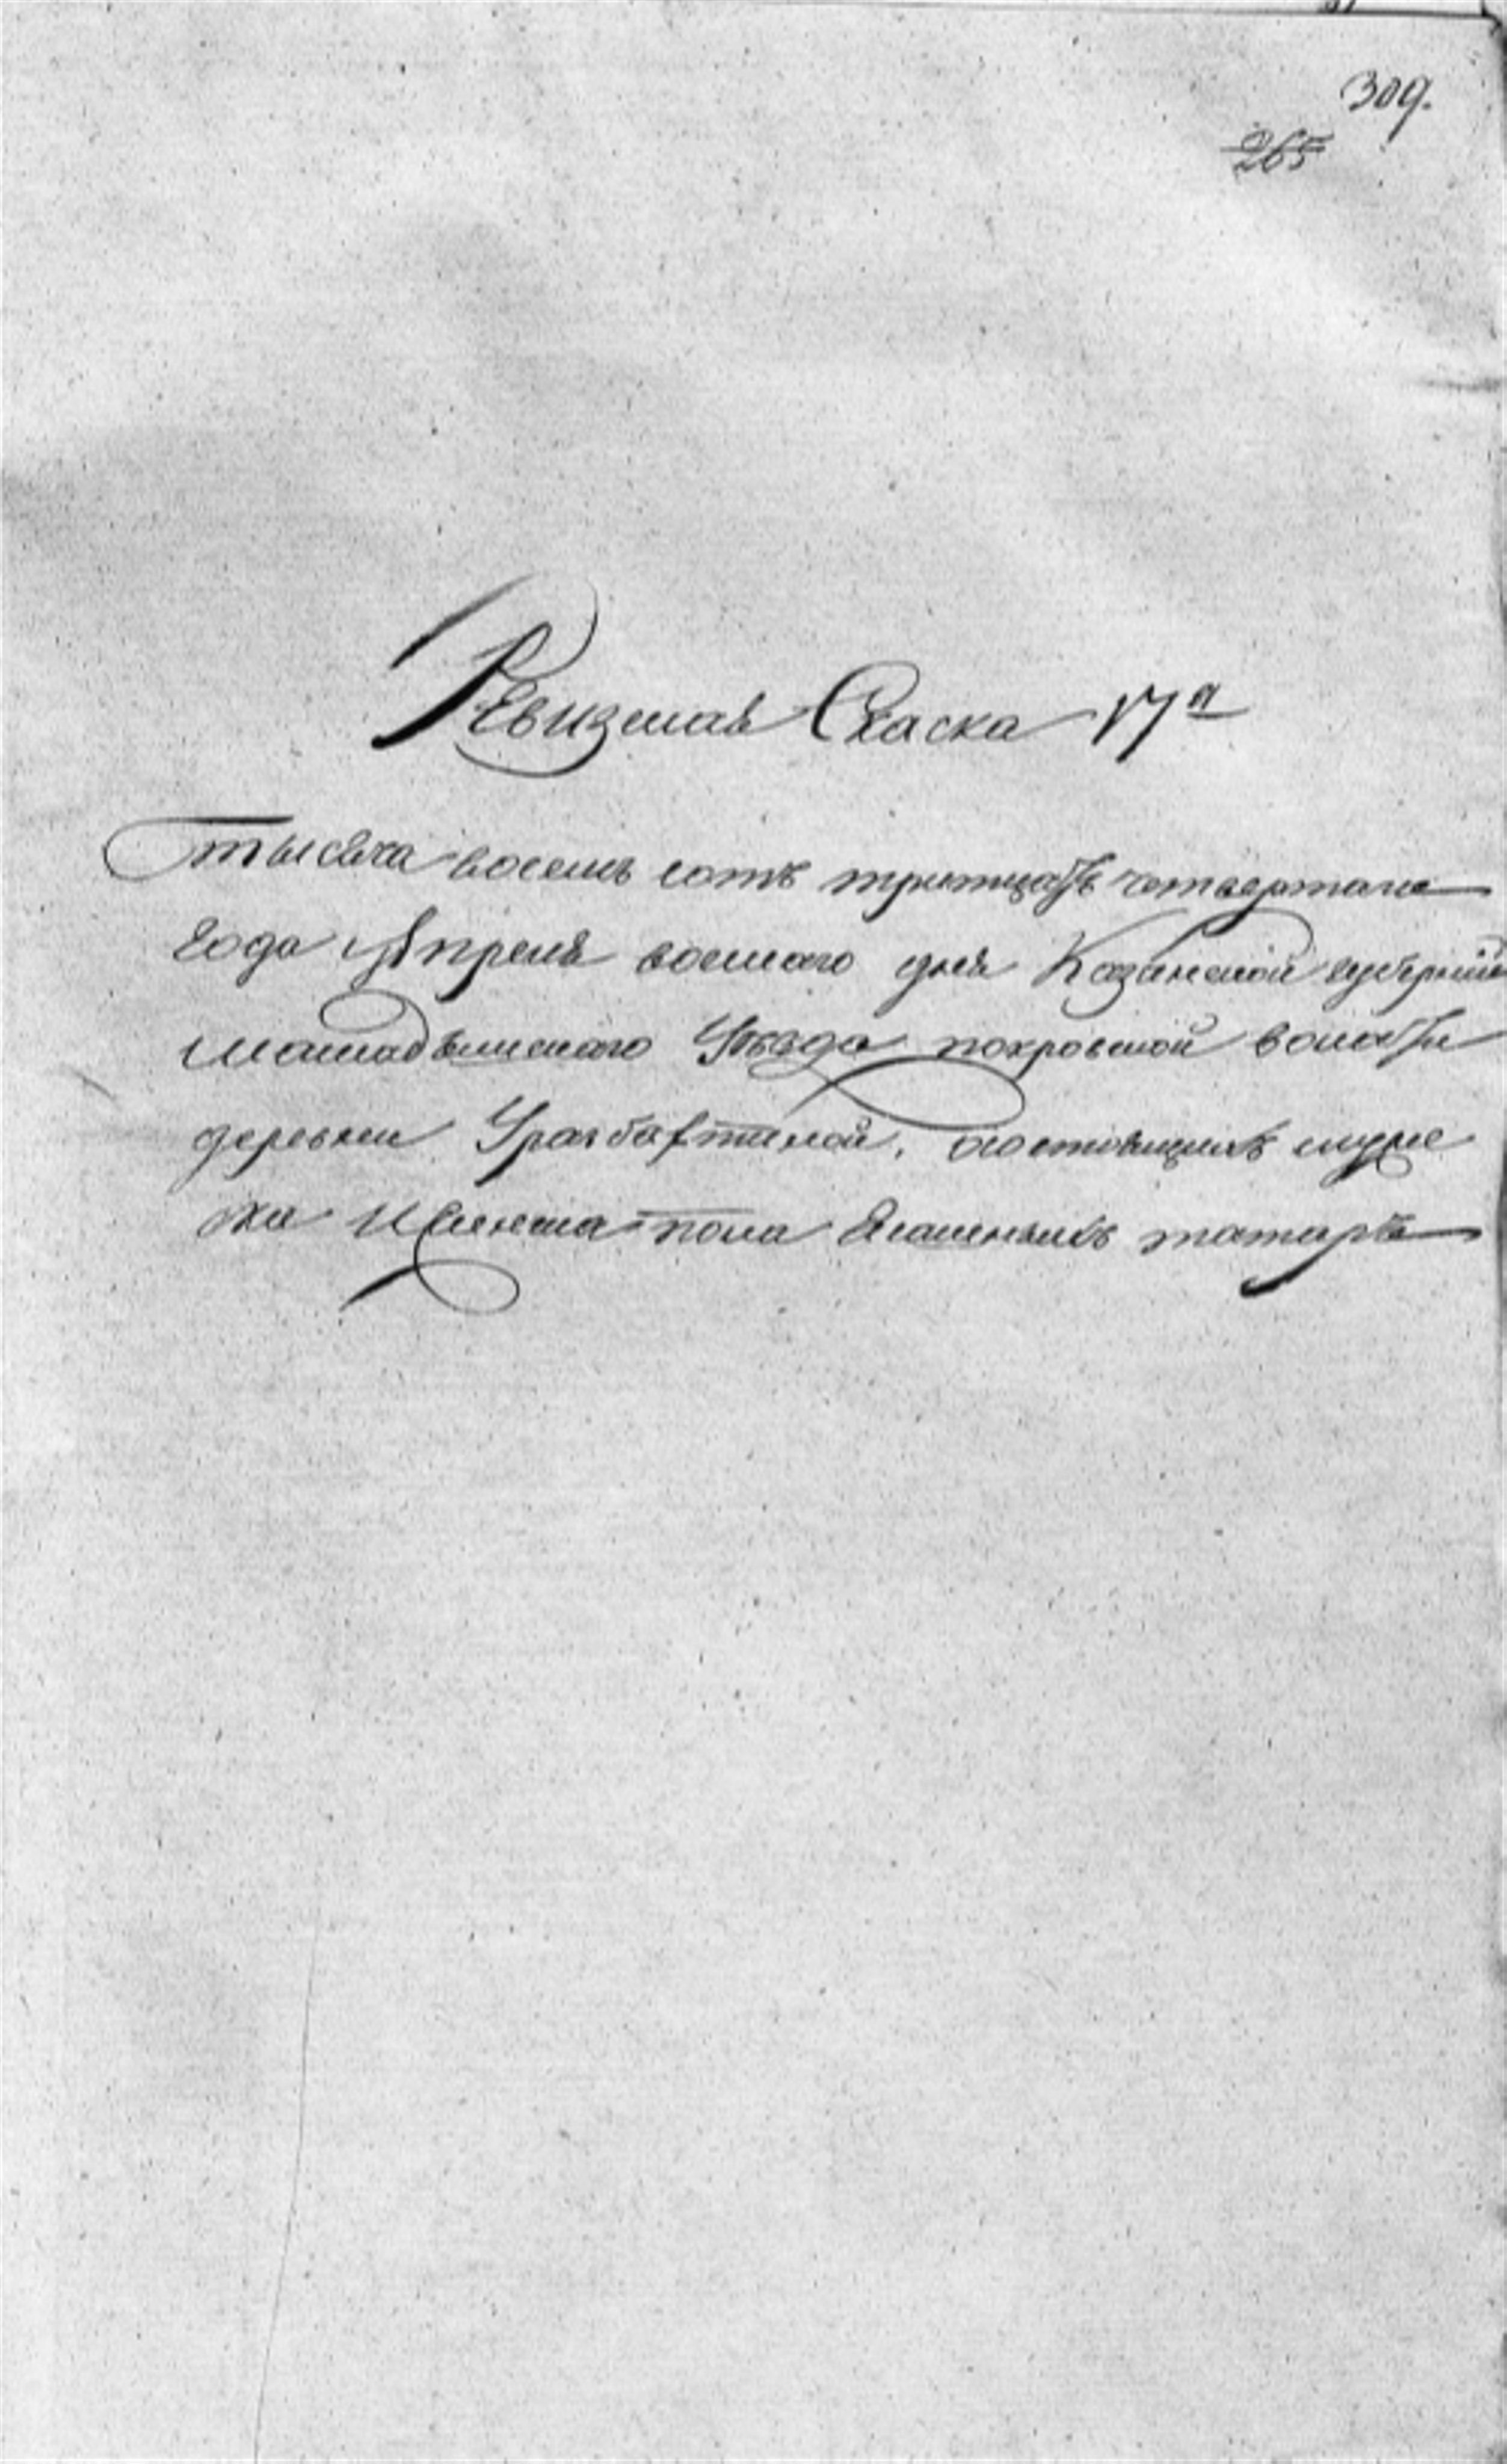 309.
265
Ревизская Скаска 17я
тысяча восемь сотъ тритцать четвертаго
года Апреля восмаго дня Казанской губернии
мамадышскаго Уѣзда покровской волости
деревни Уразбахтиной, о состоящихъ муже
ска И женска пола Ясашныхъ татаръ